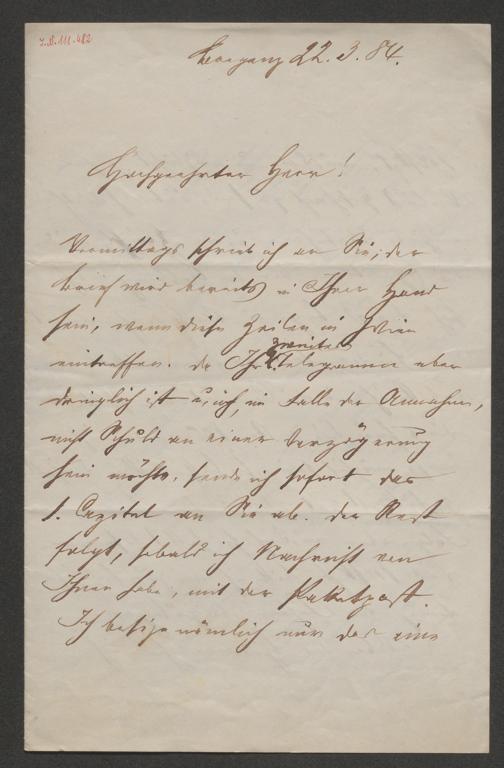 I.N. 111.482
Bregenz 22.3.84.
Hochgeehrter Herr!
Vormittags schrieb ich an Sie; der
Brief wird bereits in Ihrer Hand
sein, wenn diese Zeilen in Wien
eintreffen. Da Ihr zweites Telegramm aber
dringlich ist u. ich, im Falle der Annahme,
nicht Schuld an einer Verzögerung
sein möchte, sende ich sofort das
1. Capitel an Sie ab. Der Rest
folgt, sobald ich Nachricht von
Ihnen habe, mit der Paketpost.
Ich besitze nämlich nur das eine